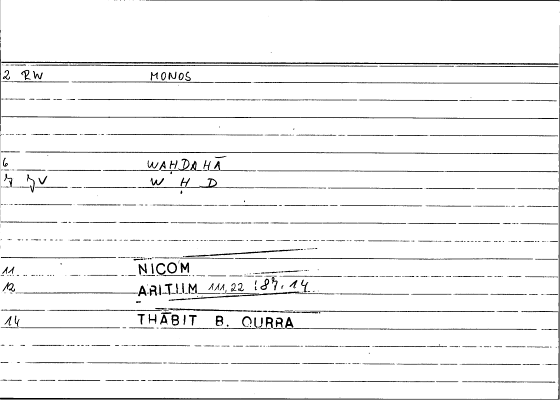 2 RW MONOS
6 WAḤDAHĀ
7 JV W Ḥ D
11 NICOM
12 ARITIIM 111,22 :87,14
14 THĀBIT B. QURRA